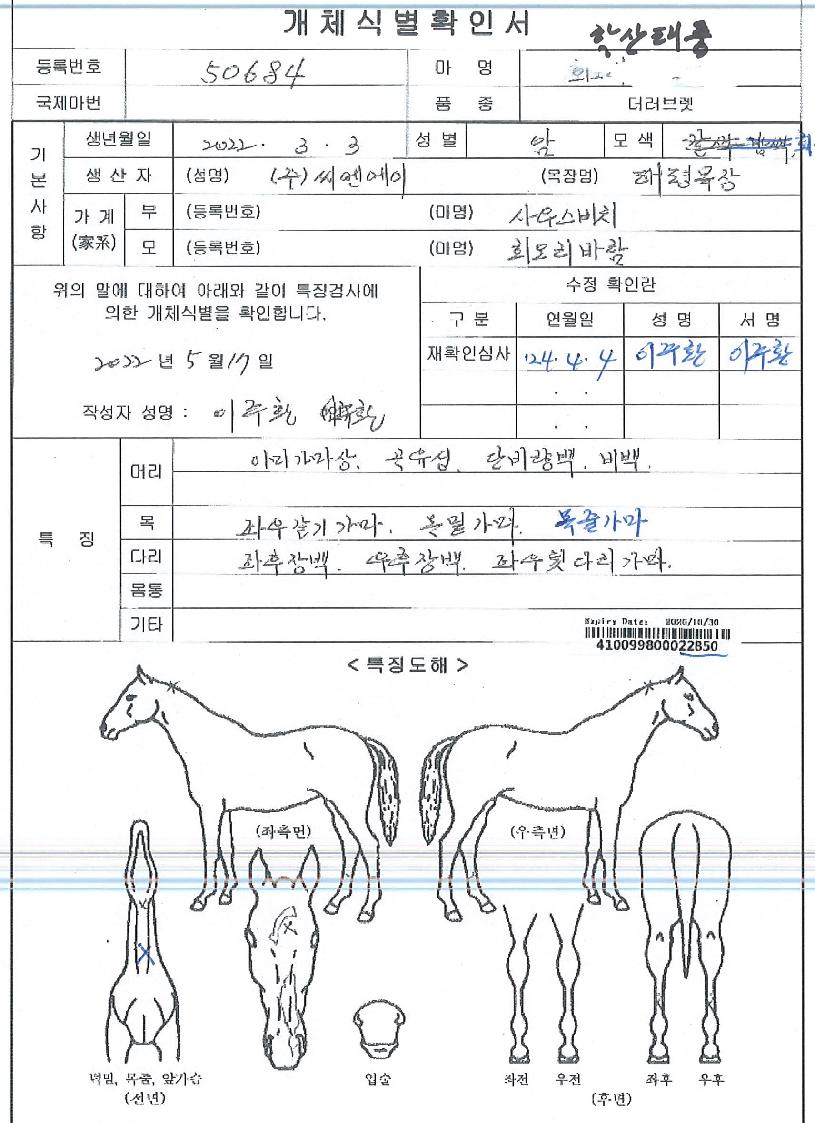 개체식별확인서
학산태풍
등록번호 50684 마 명
국제마번 품 종 더러브렛
기본사항
생년월일 2022. 3. 3 성 별 암 모 색
생 산 자 (성명) (주)씨엔에이 (목장명) 해령목장
가 계 (家系)
부 (등록번호) (마명) 사우스비치
모 (등록번호) (마명) 회오리바람
위의 말에 대하여 아래와 같이 특징검사에
의한 개체식별을 확인합니다.
2022 년 5 월 17 일
작성자 성명 : 이주환
수정 확인란
구 분 연월일 성 명 서 명
재확인심사 '24. 4. 4 이주환 이주환
특 징
머리 이리가마상. 곡유성. 단비량백. 비백.
목 좌우갈기가마. 목밑가마. 목줄가마
다리 좌후장백. 우후장백. 좌우뒷다리가마.
몸통
기타
Expiry Date: 2026/10/30
410099800022850
< 특징도해 >
(좌측면) (우측면)
턱밑, 목줄, 앞가슴
(전면)
입술
좌전 우전 좌후 우후
(후면)